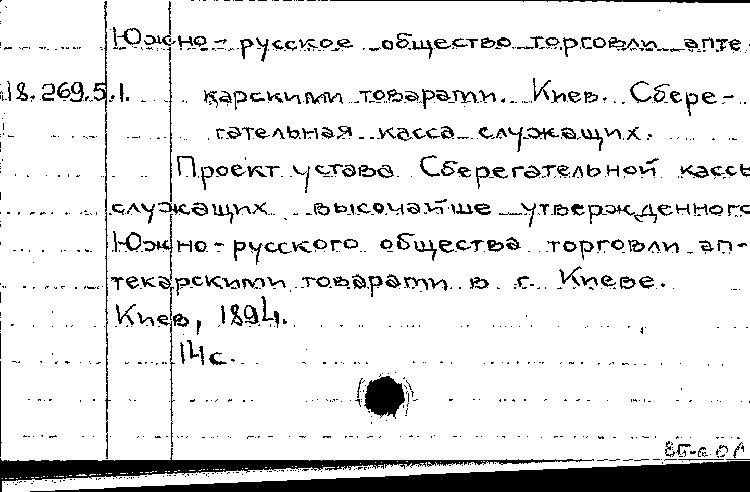 Южно-русское общество торговли апте
18.269.5.1. карскими товарами. Киев. Сбере-
гательная касса служащих.
Проект устава Сберегательной кассы
служащих высочайше утвержденного
Южно-русского общества торговли ап-
текарскими товарами в г. Киеве.
Киев, 1894.
14с.